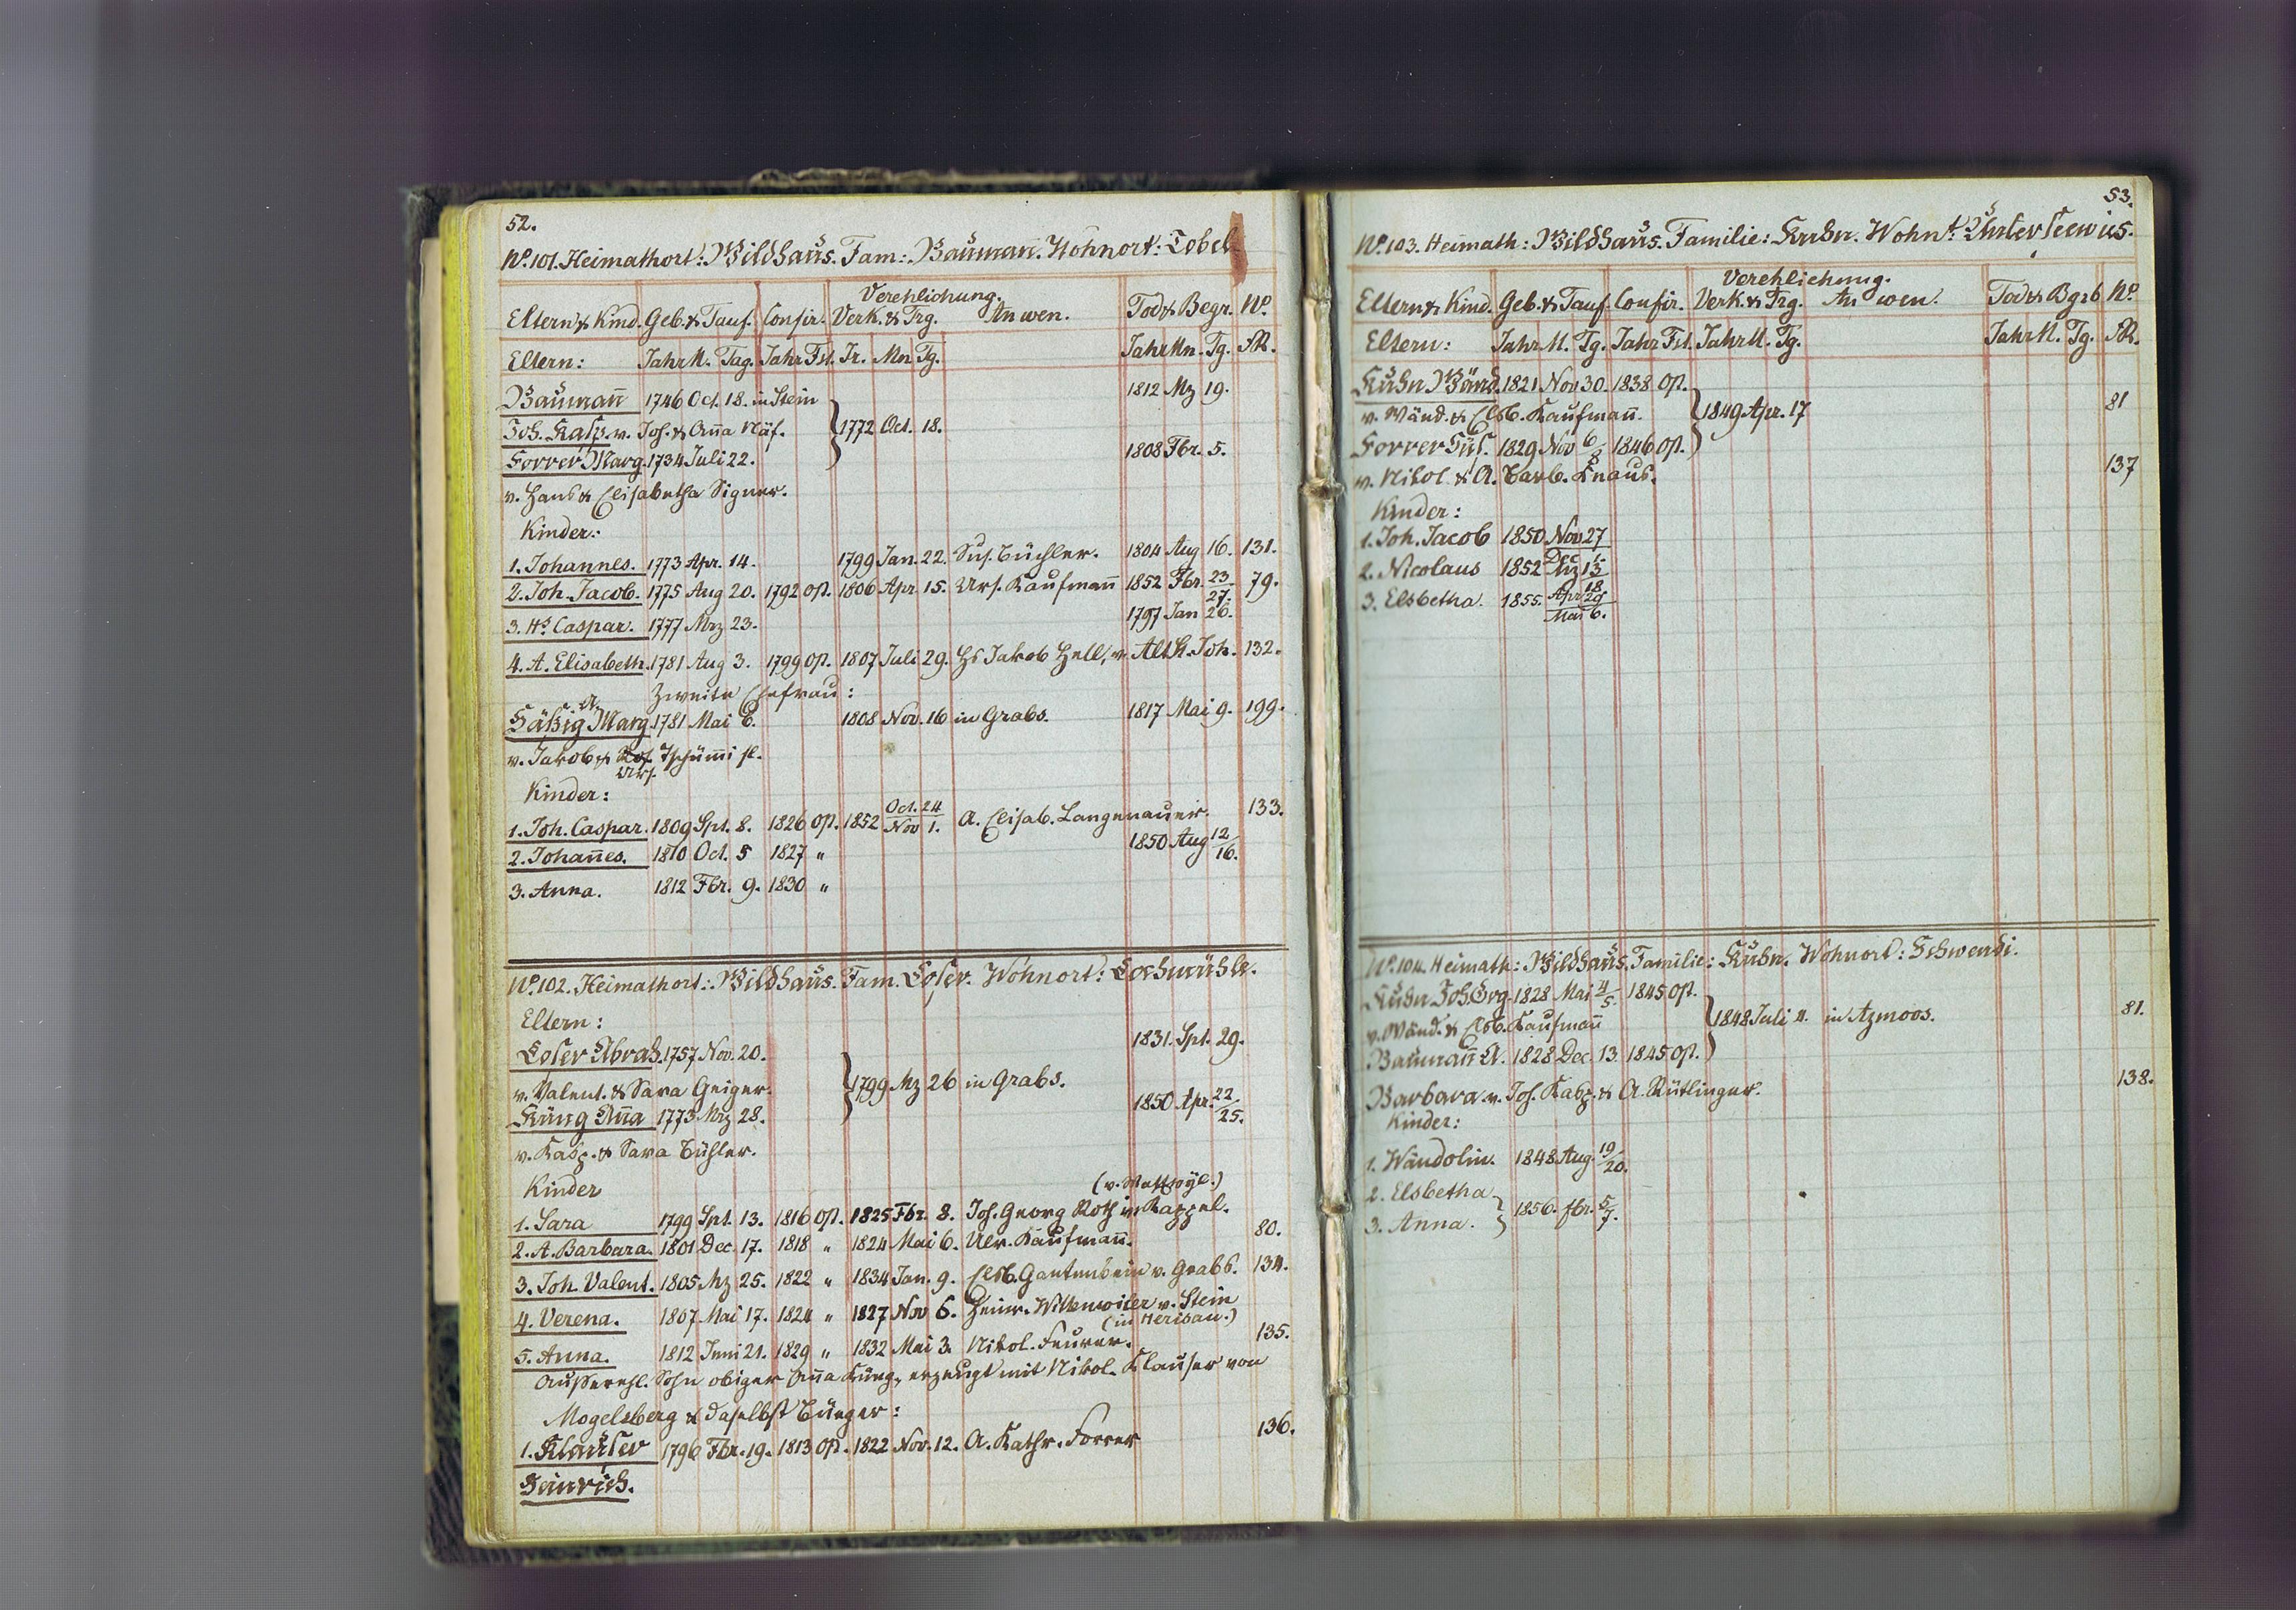 52.
No. 101. Heimathort: Wildhaus. Fam: Baumañ. Wohnort: Tobel
Verehlichung.
Eltern & Kind. Geb. & Tauf. Confir. Verk. & Trg. An wen. Tod & Begr. No.
Eltern: Jahr M. Tag. Jahr Fst. Jr. Mn Tg. Jahr Mn. Tg. R.
Baumañ 1746 Oct. 18. in Stein 1812 Mz 19.
Joh. Kasp. v. Joh. & Aña Näf. 1772 Oct. 18.
Forrer Marg. 1734 Juli 22. 1808 Fbr. 5.
v. Hans & Elisabetha Signer.
Kinder:
1. Johannes. 1773 Apr. 14. 1799 Jan. 22. Sus. Büchler. 1804 Aug 16. 131.
2. Joh. Jacob. 1775 Aug 20. 1792 Ost. 1806 Apr. 15. Urs. Kaufmañ 1852 Fbr. 23/27. 79.
3. Hs. Caspar. 1777 Mrz 23. 1797 Jan 26.
4. A. Elisabeth. 1781 Aug 3. 1799 Ost. 1807 Juli 29. Hs Jakob Hell, v. Alt St. Joh. 132.
Zweite Ehefrau:
A. Marg. 1781 Mai 6. 1808 Nov. 16 in Grabs. 1817 Mai 9. 199.
v. Jakob & Urs. Tschüm̃i sl.
Kinder:
1. Joh. Caspar. 1809 Spt. 8. 1826 Ost. 1852 Oct. 24/Nov 1. A. Elisab. Langenauer. 133.
2. Johañes. 1810 Oct. 5 1827 " 1850 Aug 12/16.
3. Anna. 1812 Fbr. 9. 1830 "
No. 102. Heimathort: Wildhaus. Fam. Loser. Wohnort: Lochmühle.
Eltern:
Loser Abrah. 1757 Nov. 20. 1831. Spt. 29.
v. Valent. & Sara Geiger. 1799 Mz 26 in Grabs.
Küng Aña 1773 Mrz 28. 1850 Apr. 22/25.
v. Kasp. & Sara Bühler.
Kinder (v. Wattwyl.)
1. Sara 1799 Spt. 13. 1816 Ost. 1825 Fbr. 8. Joh. Georg Roth in Kappel.
2. A. Barbara. 1801 Dec. 17. 1818 " 1824 Mai 6. Ulr. Kaufmañ. 80.
3. Joh. Valent. 1805 Mz 25. 1822 " 1834 Jan. 9. Elsb. Gantenbein v. Grabs. 134.
4. Verena. 1807 Mai 17. 1824 " 1827 Nov 6. Heinr. Wittenwiler v. Stein
(in Herisau.)
5. Anna. 1812 Juni 21. 1829 " 1832 Mai 3. Nikol. Feurer. 135.
Ausserehl. Sohn obiger Aña Küng, erzeugt mit Nikol. Klauser von
Mogelsberg & daselbst Bürger:
1. Klauser 1796 Fbr. 19. 1813 Ost. 1822 Nov. 12. A. Kathr. Forrer 136.
Heinrich.
53.
No. 103. Heimath: Wildhaus. Familie: Kuhn. Wohnt:
Verehlichung.
Eltern & Kind. Geb. & Tauf. Confir. Verk. & Trg. An wen. Tod & Bgrb No.
Eltern: Jahr M. Tg. Jahr Fst. Jahr M. Tg. Jahr M. Tg. R.
Kuhn Wänd. 1821 Nov 30. 1838 Ost.
v. Wänd. & Elsb. Kaufmañ. 1849 Apr. 17 81
Forrer Sus. 1829 Nov 6/8 1846 Ost.
v. Nikol. & A. Barb. Knaus. 137
Kinder:
1. Joh. Jacob 1850 Nov 27
2. Nicolaus 1852 Dec 15
3. Elsbetha. 1855. Apr 29/Mai 6.
No. 104. Heimath: Wildhaus. Familie: Kuhn. Wohnort: Schwendi.
Kuhn Joh. Grg. 1828 Mai 4/5. 1845 Ost.
v. Wänd. & Elsb. Kaufmañ 1848 Juli 4. in Azmoos. 81.
Baumañ A. 1828 Dec. 13. 1845 Ost.
Barbara v. Joh. Kasp. & A. Rütlinger. 138.
Kinder:
1. Wändolin. 1848 Aug. 19/20.
2. Elsbetha
3. Anna. 1856. fbr. 5/7.